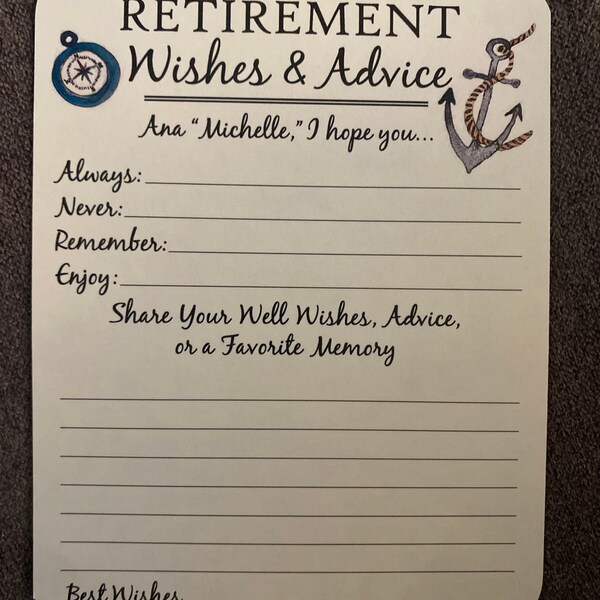 RETIREMENT
Wishes & Advice
Ana "Michelle," I hope you...
Always:
Never:
Remember:
Enjoy:
Share Your Well Wishes, Advice,
or a Favorite Memory
Best Wishes,